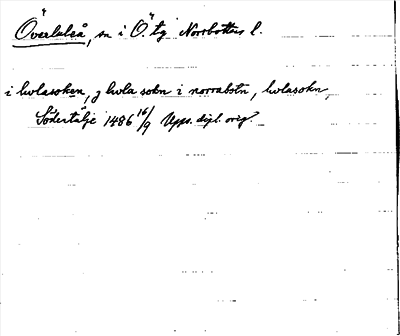 Överluleå, sn i Ö. tg Norrbottens l.
i lvlasoken, j lwla sokn i norrabotn, lwlasokn,
Södertälje 1486 16/9 Upps. dipl. orig.